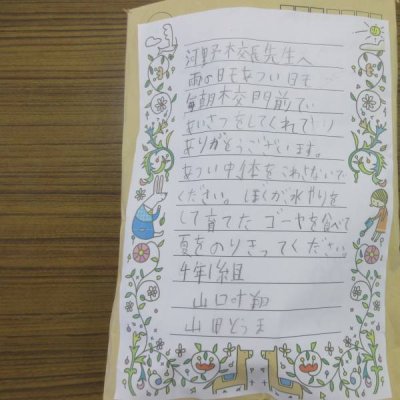 河野校長先生へ
雨の日もあつい日も
毎朝校門前で
あいさつをしてくれて
ありがとうございます。
あつい中体をこわさないで
ください。ぼくが水やりを
して育てたゴーヤを食べて
夏をのりきってください。
4年1組
山口叶翔
山田とうま